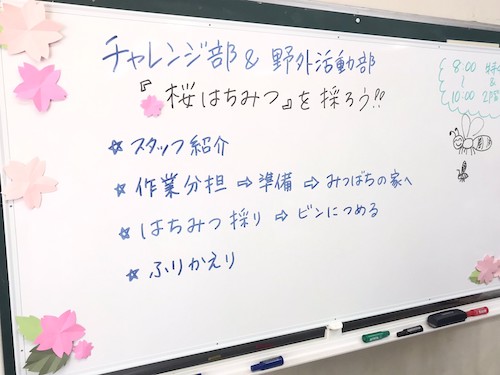 チャレンジ部 & 野外活動部
『桜はちみつ』を採ろう!!
☆ スタッフ紹介
☆ 作業分担 ⇨ 準備 ⇨ みつばちの家へ
☆ はちみつ採り ⇨ ビンにつめる
☆ ふりかえり
8:00
10:00